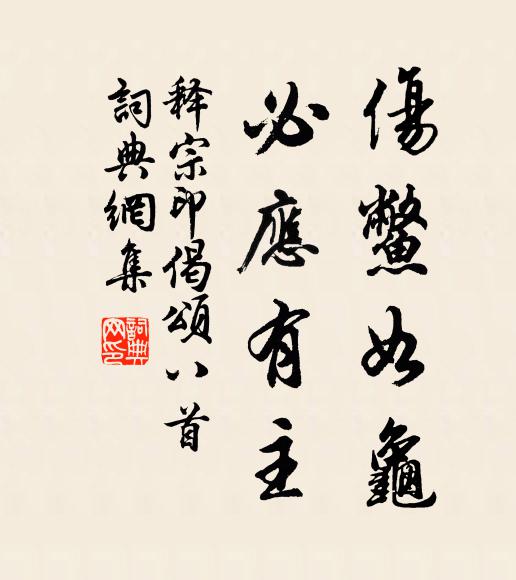 傷鱉如龜
必應有主
釋宗印偈頌八首
詞典網集
詞典
网印